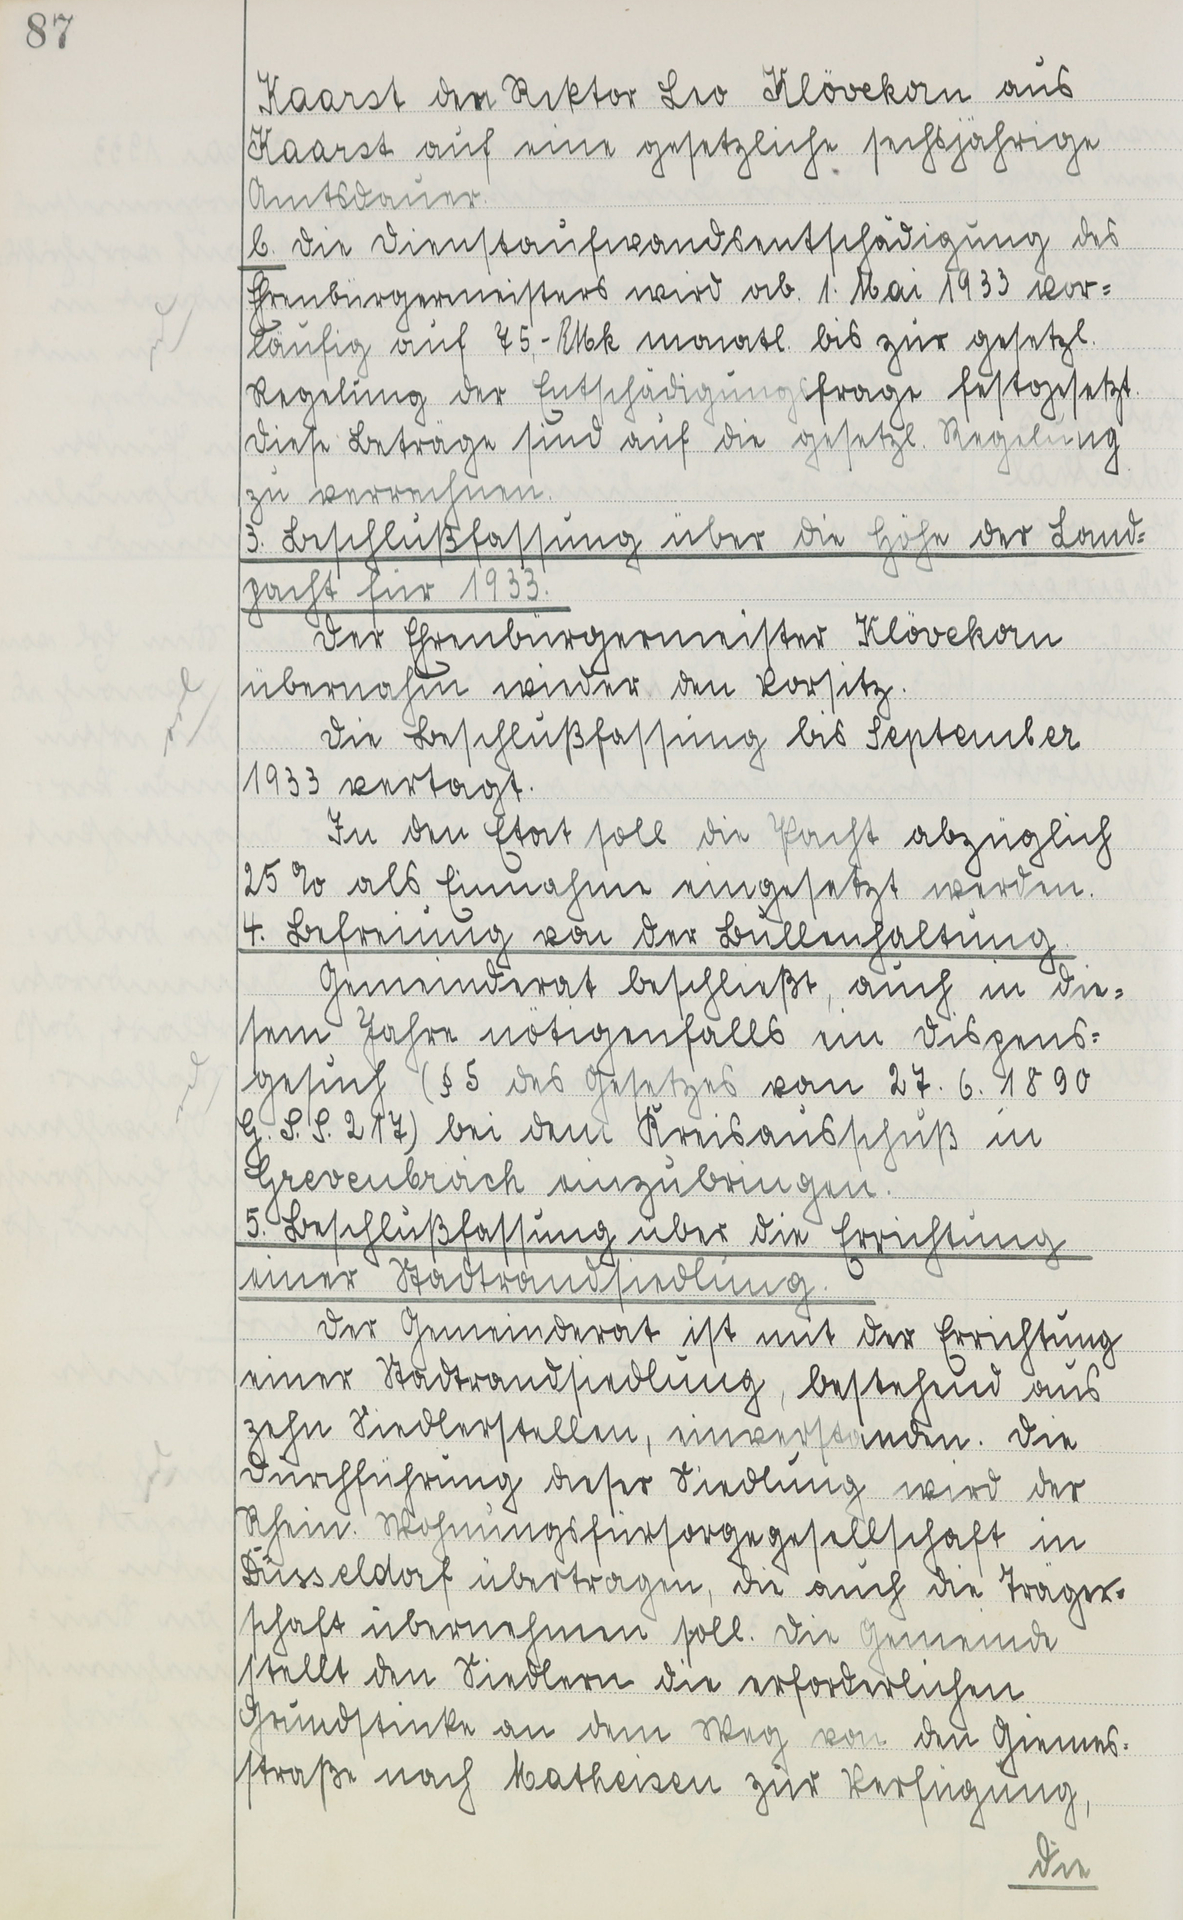 87
Kaarst den Rektor Leo Klövekorn aus
Kaarst auf eine gesetzliche sechsjährige
Amtsdauer.
b. Die Dienstaufwandsentschädigung des
Ehrenbürgermeisters wird ab. 1. Mai 1933 vor=
läufig auf 75,- RMk monatl. bis zur gesetzl.
Regelung der Entschädigungsfrage festgesetzt.
Diese Beträge sind auf die gesetzl. Regelung
zu verrechnen.
3. Beschlußfassung über die Höhe der Land=
pacht für 1933.
Der Ehrenbürgermeister Klövekorn
übernahm wieder den Vorsitz.
Die Beschlußfassung bis September
1933 vertagt.
In den Etat soll die Pacht abzüglich
25 % als Einnahme eingesetzt werden.
4. Befreiung von der Bullenhaltung
Gemeinderat beschließt, auch in die=
sem Jahre nötigenfalls ein Dispens=
gesuch (§ 5 des Gesetzes von 27. 6. 1890
G. S. S. 217) bei dem Kreisausschuß in
Grevenbroich einzubringen.
5. Beschlußfassung über die Errichtung
einer Stadtrandsiedlung.
Der Gemeinderat ist mit der Errichtung
einer Stadtrandsiedlung, bestehend aus
zehn Siedlerstellen, einverstanden. Die
Durchführung dieser Siedlung wird der
Rhein. Wohnungsfürsorgegesellschaft in
Düsseldorf übertragen, die auch die Träger=
schaft übernehmen soll. Die Gemeinde
stellt den Siedlern die erforderlichen
Grundstücke an dem Weg von den Giemes=
straße nach Matheisen zur Verfügung,
die